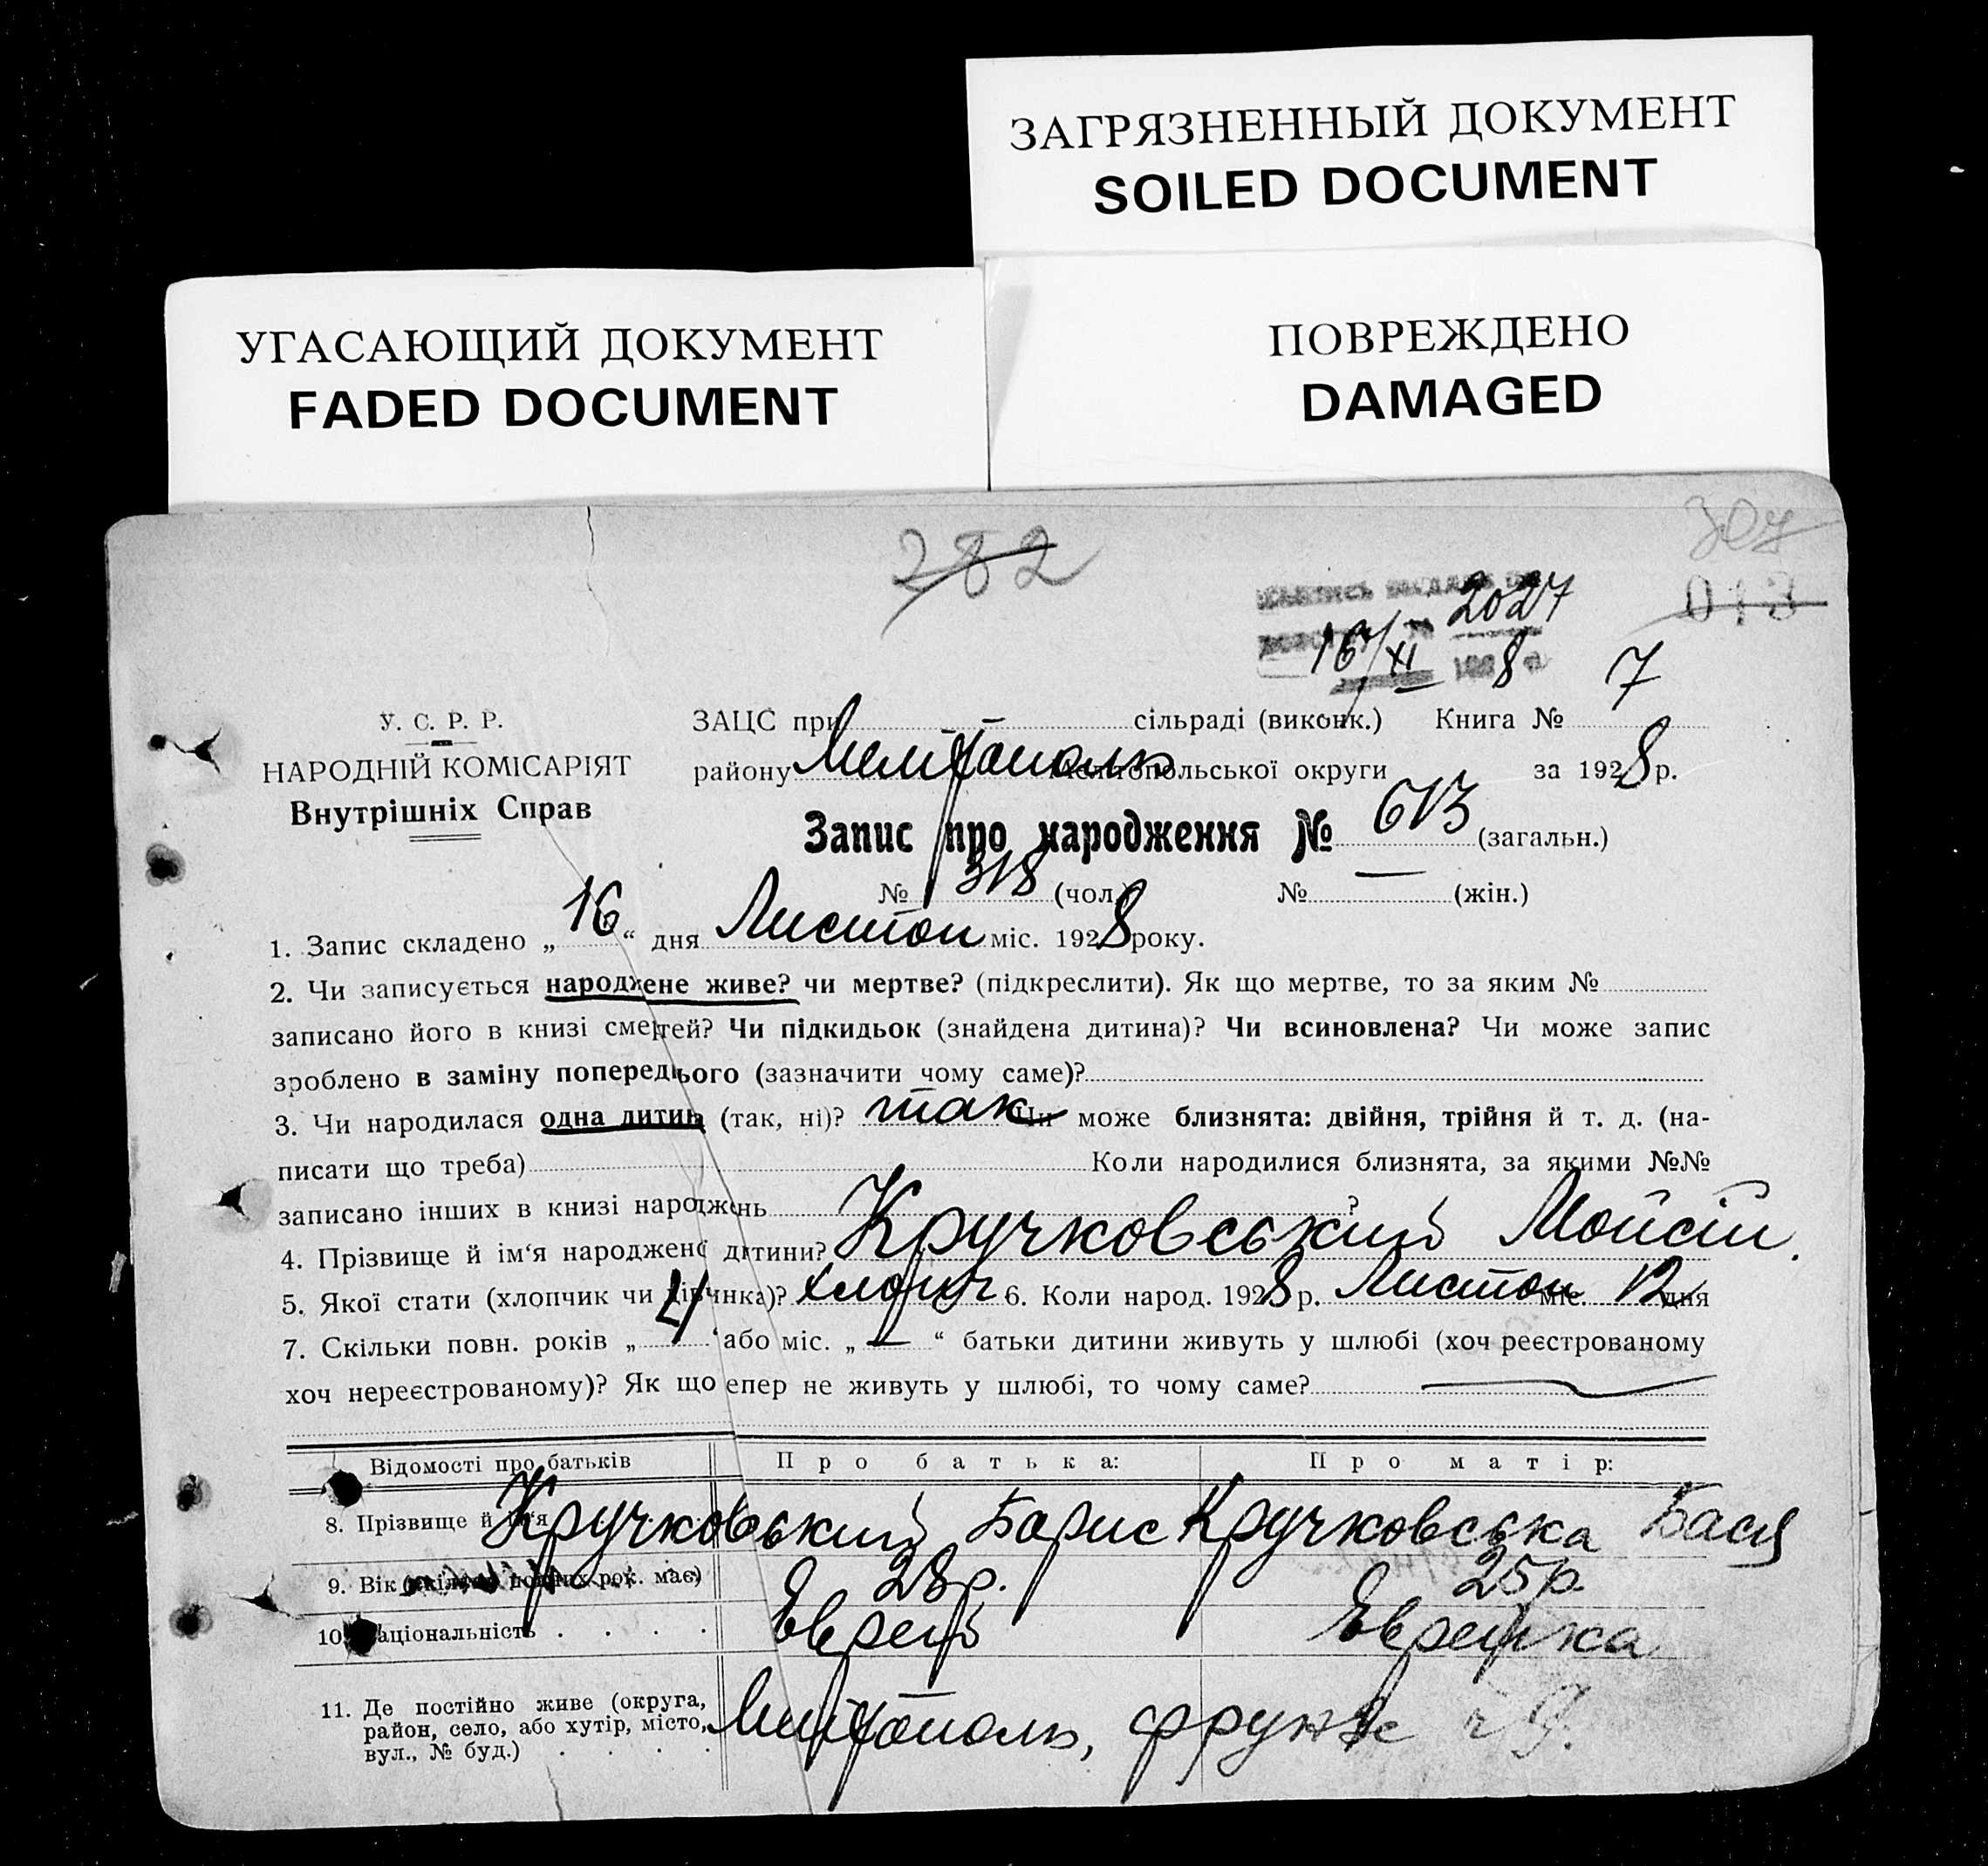 ЗАГРЯЗНЕННЫЙ ДОКУМЕНТ
SOILED DOCUMENT
УГАСАЮЩИЙ ДОКУМЕНТ
FADED DOCUMENT
ПОВРЕЖДЕНО
DAMAGED
282
307
013
2027
16/XI 8
У. С. Р. Р.
НАРОДНІЙ КОМІСАРІЯТ
Внутрішніх Справ
ЗАЦС при — сільраді (виконк.) Книга № 7
району Мелітополь Мелітопольської округи за 1928 р.
Запис про народження № 613 (загальн.)
№ 318 (чол.) № — (жін.)
1. Запис складено „16“ дня Листоп міс. 1928 року.
2. Чи записується народжене живе? чи мертве? (підкреслити). Як що мертве, то за яким №
записано його в книзі смертей? Чи підкидьок (знайдена дитина)? Чи всиновлена? Чи може запис
зроблено в заміну попереднього (зазначити чому саме)?
3. Чи народилася одна дитина (так, ні)? так Чи може близнята: двійня, трійня й т. д. (на-
писати що треба) Коли народилися близнята, за якими №№
записано інших в книзі народжень ?
4. Прізвище й ім‘я народженої дитини? Кручковський Мойсій.
5. Якої стати (хлопчик чи дівчинка)? хлопч 6. Коли народ. 1928 р. Листоп міс. 12 дня
7. Скільки повн. років „4“ або міс. „—“ батьки дитини живуть у шлюбі (хоч реєстрованому
хоч нереєстрованому)? Як що тепер не живуть у шлюбі, то чому саме? —
Відомості про батьків Про батька: Про матір:
8. Прізвище й ім‘я Кручковський Борис Кручковська Бася
9. Вік (скільки повних рок. має) 28 р. 25 р.
10. Національність . . . . Еврей Еврейка
11. Де постійно живе (округа,
район, село, або хутір, місто,
вул., № буд.) . . . . Мелітополь, Фрунзе 9.